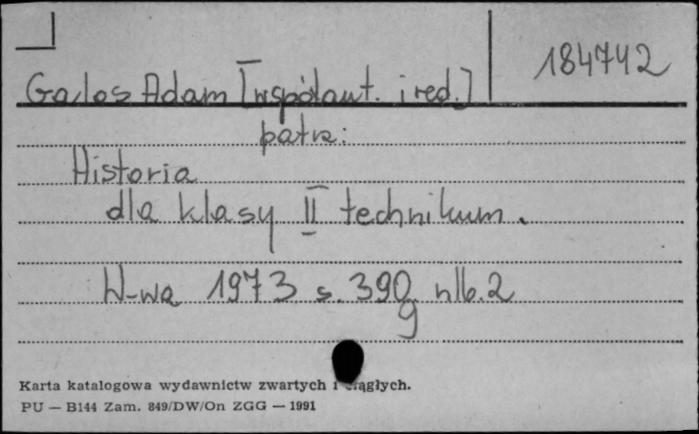 184742
Galos Adam [współaut. i red.]
patrz:
Historia
dla klasy II technikum.
W-wa 1973 s. 390 nlb. 2
g
Karta katalogowa wydawnictw zwartych i ciągłych.
PU — B144 Zam. 849/DW/On ZGG — 1991